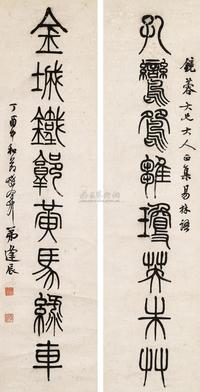 鏡蓉大兄大人正集易林語
孔鸞鴛雛瓊英朱艸
金城鐵郭黃馬綠車
丁酉中和節
弟逢辰